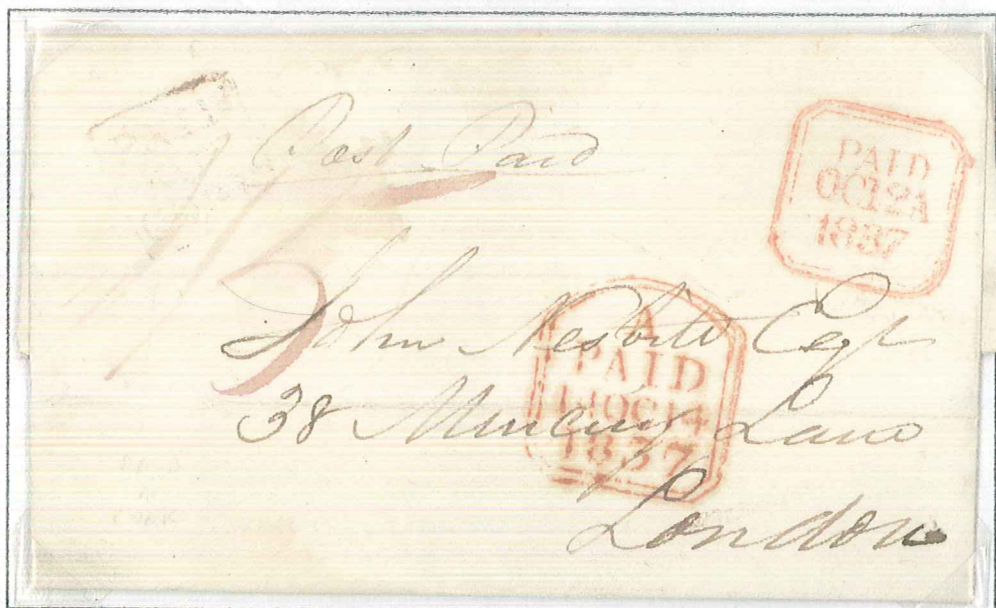 Post Paid
PAID
OC12A
1837
John Nesbitt Esqr
A
PAID
14OC14
1837
38 Mincing Lane
London